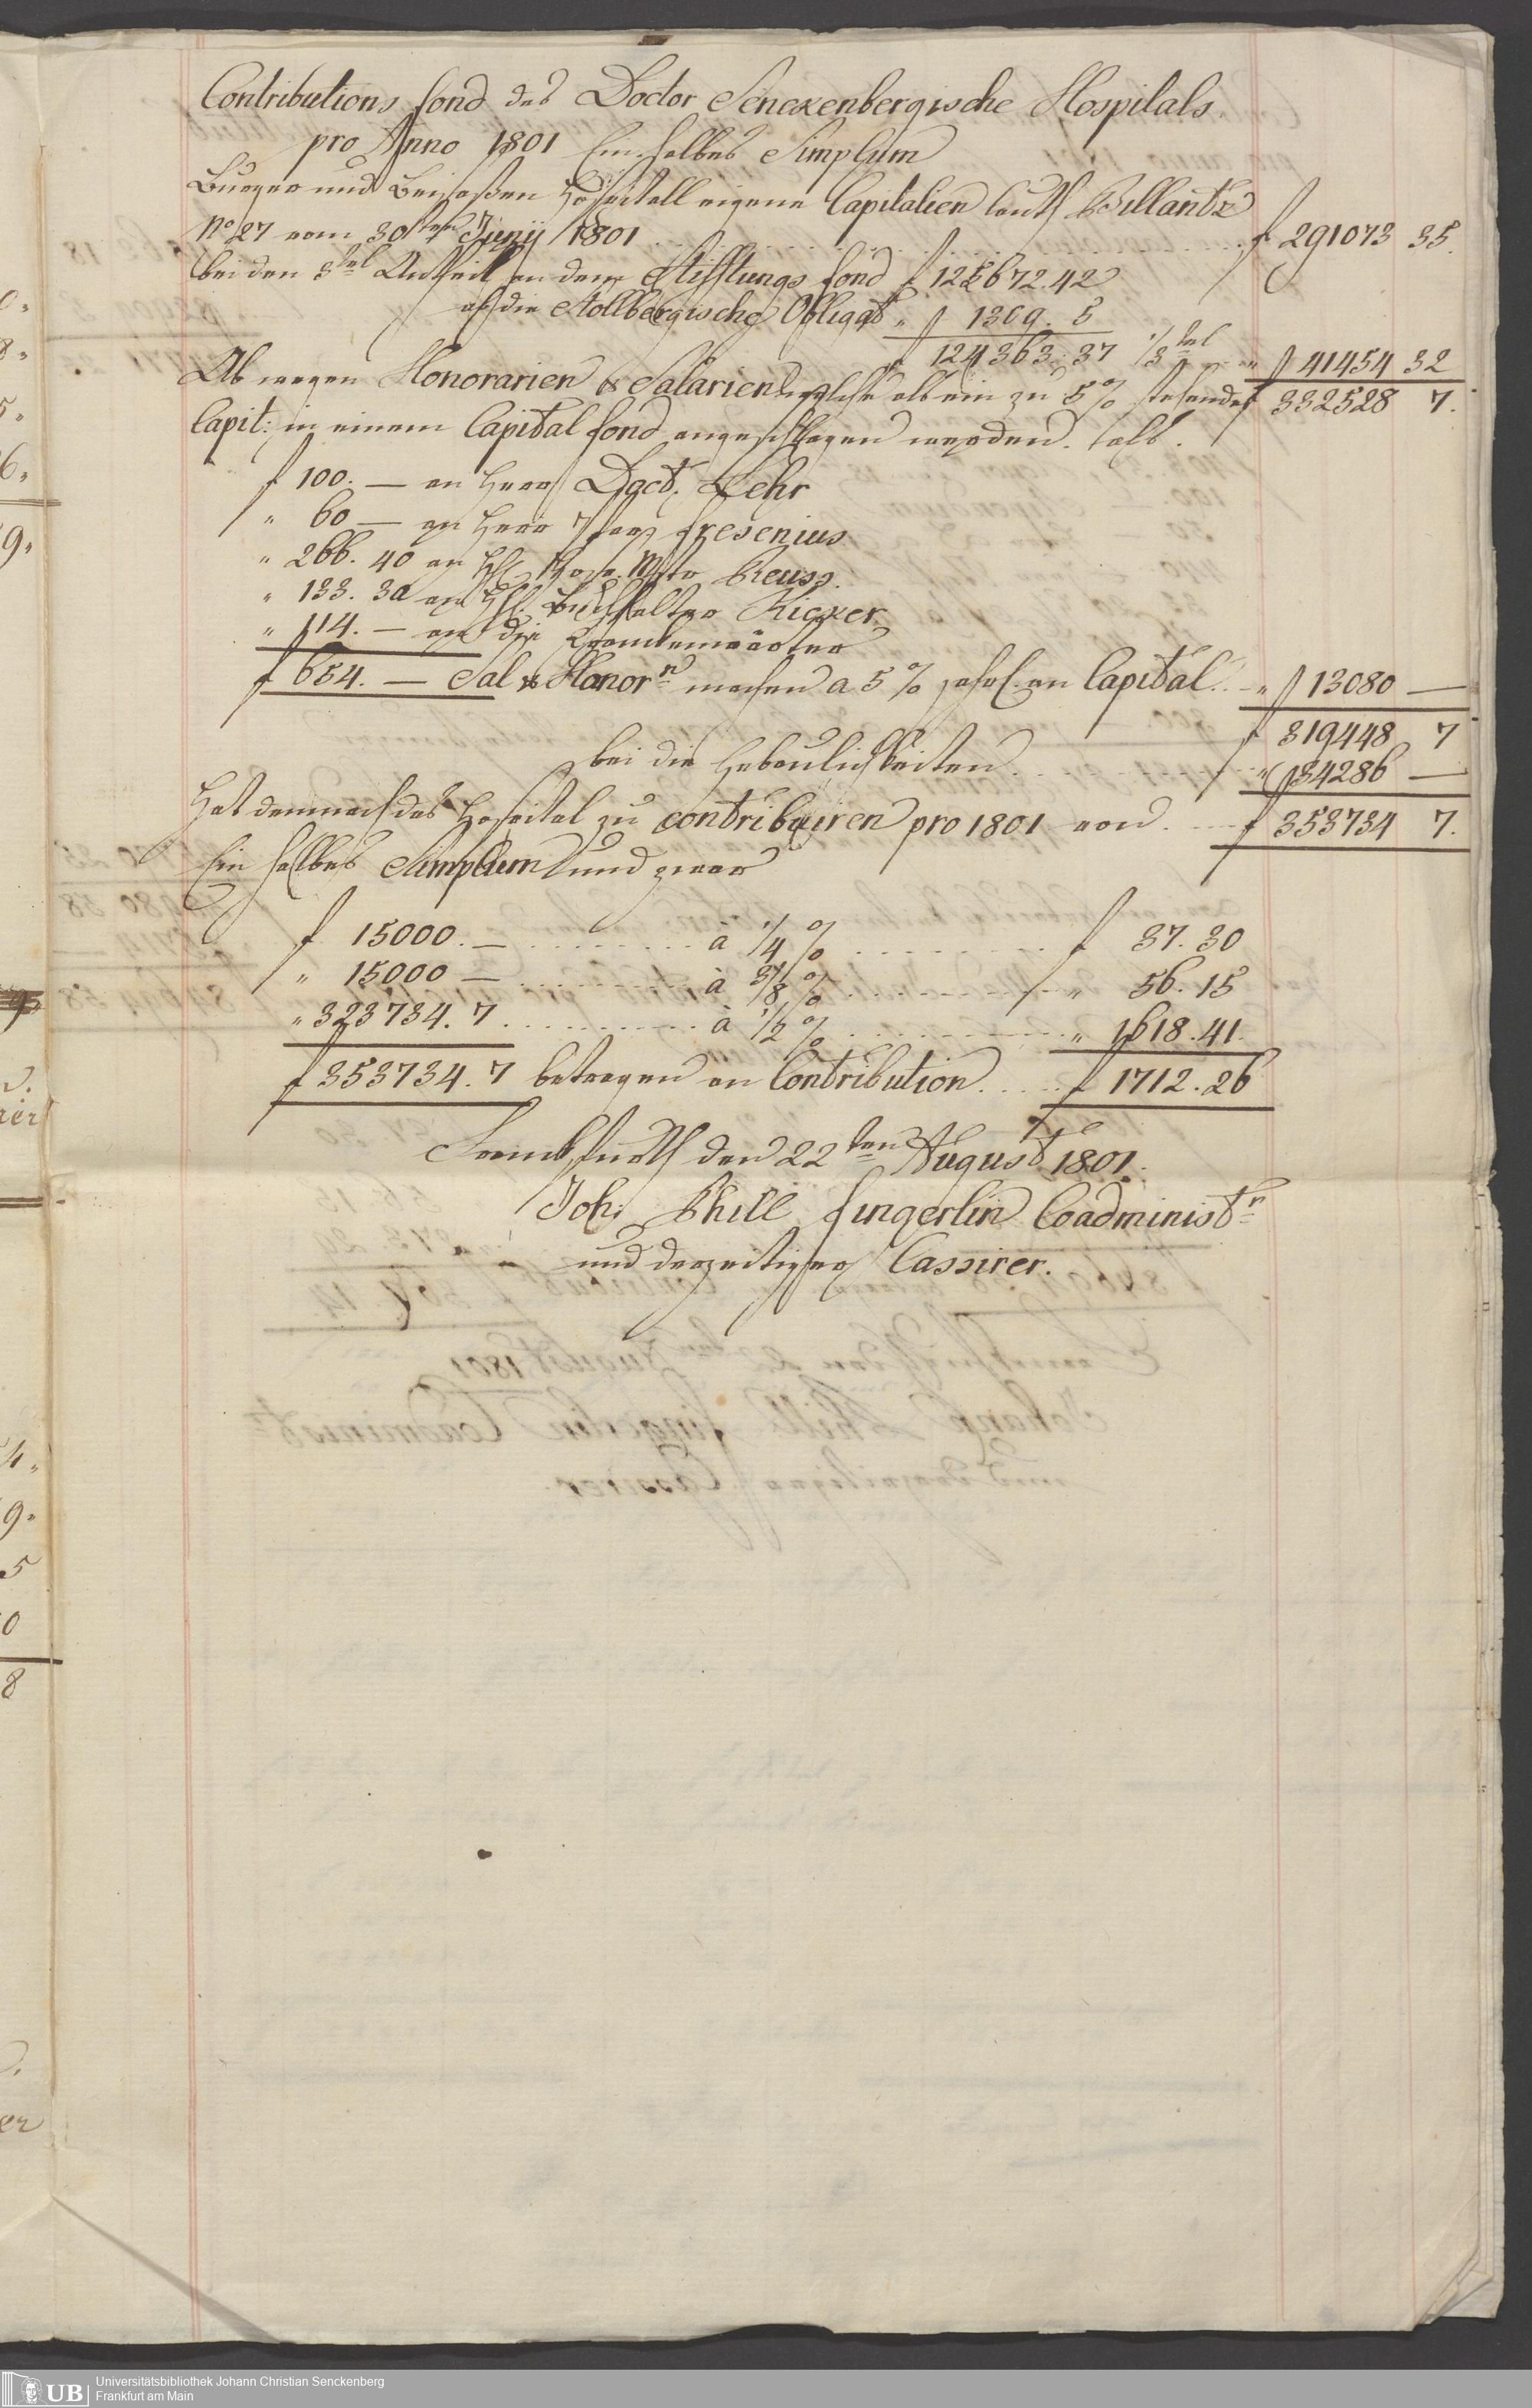 Contributions fond des Doctor Senckenbergische Hospitals.
pro Anno 1801 Ein halbes Simplum
Burger und Beisaßen Hospitall eigene Capitalien lauth Billantz
No 27 vom 30ten Junÿ 1801 . . . . f 291073 35.
bei den 3tel Antheil an dem Stifftungs fond f 125672.42
ab die Stollbergische Obligat " f 1309. 5
f 124363.37 1/3tel " f 41454 32
f 332528 7.
Ab wegen Honorarien & Salarien welche als ein zu 5% stehendes
Capit: in einem Capital fond angeschlagen werden. als.
f 100. — an Herr Doct. Lehr
" 60 — an Herr Fresenius
" 266. 40 an H. Reuss.
" 133. 30 an H. Buchhalter Kicker
" 114. — an die Krankenwärter
f 654. — Sal & Honorn machen a 5% jährl. an Capital . . " f 13080 —
f 319448 7
bei die Gebaulichkeiten . . . . " f 34286 —
Hat demnach das Hospital zu contribuiren pro 1801 von . . . . f 353734 7.
Ein halbes Simplum und zwar
f 15000. — . . . . . à 1/4 % . . . . . f 37. 30
" 15000 — . . . . . à 3/8 % . . . . . " 56. 15
" 323734. 7 . . . . . à 1/2 % . . . . . " 1618. 41.
f 353734. 7 betragen an Contribution . . . . f 1712. 26
Franckfurth den 22ten August 1801.
Joh: Phill fingerlin Coadministr
und derzeitiger Cassirer.
UB
Universitätsbibliothek Johann Christian Senckenberg
Frankfurt am Main